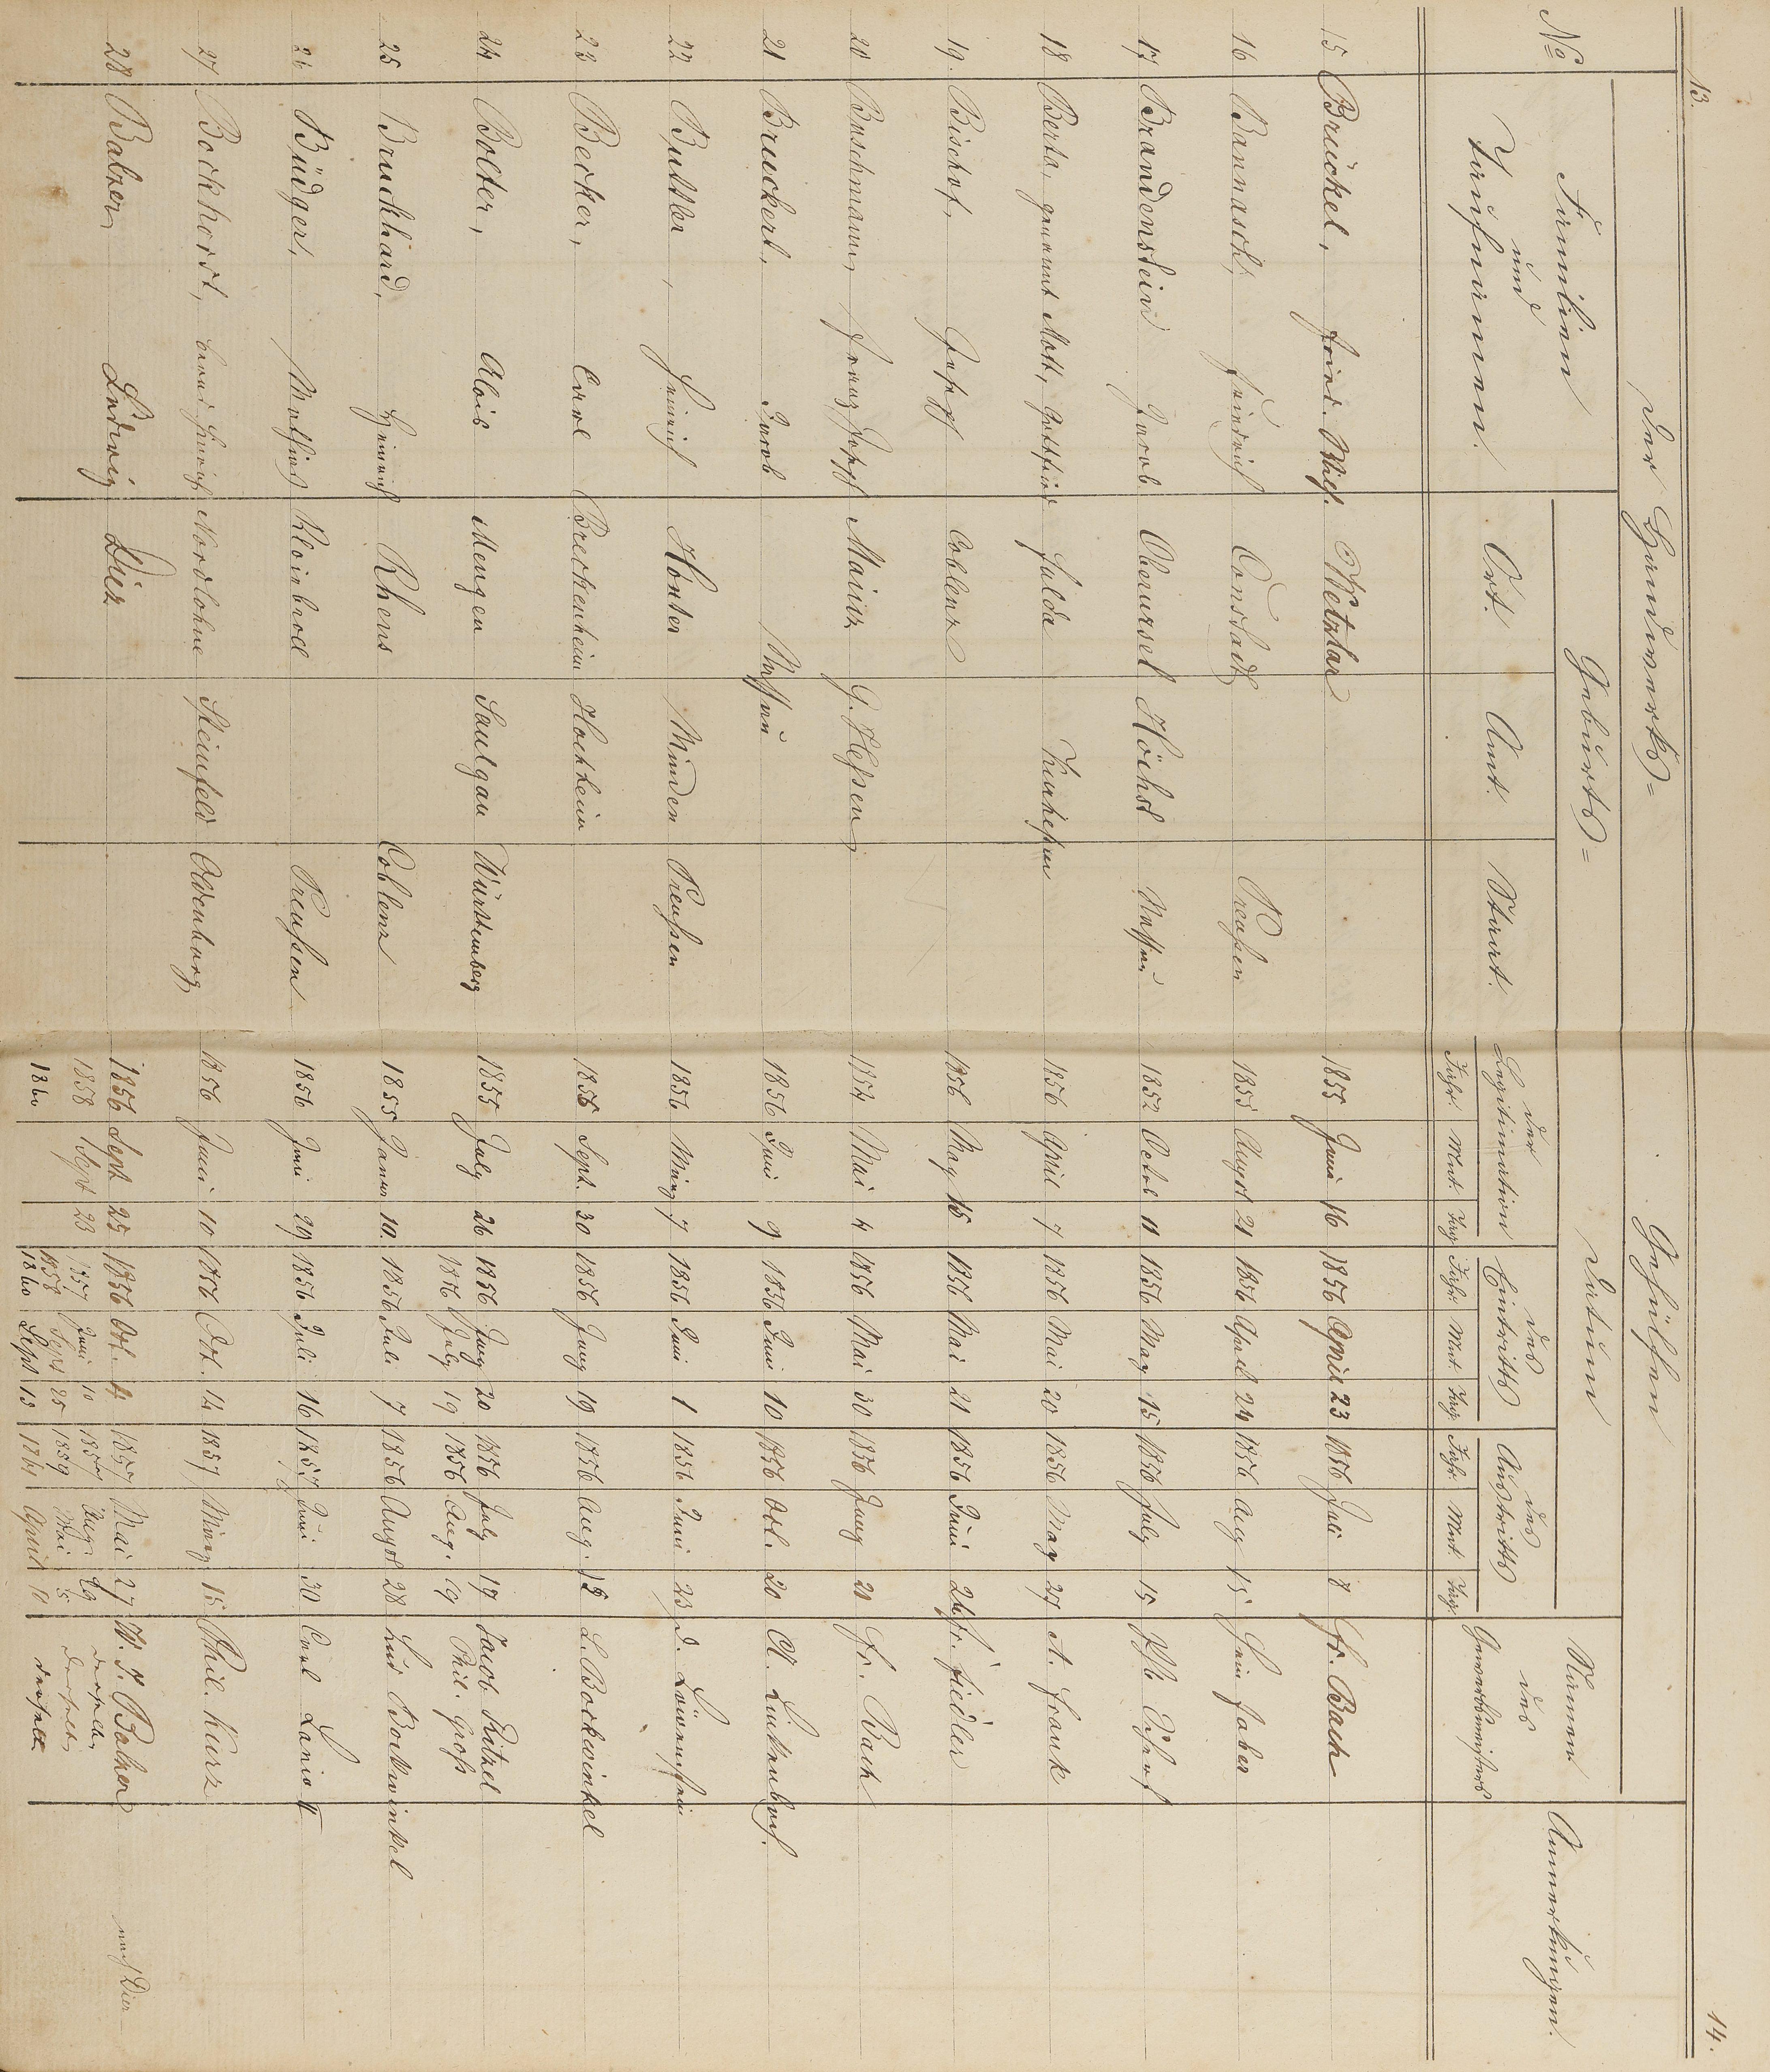 13. 14.
Der Handwerks= Gehülfen
No Familien und Vornamen. Geburts= Datum Namen des Gewerbsmeisters Anmerkungen.
Ort. Amt. Staat. der Legitimation des Eintritts des Austritts
Jahr. Mnt. Tag. Jahr. Mnt. Tag. Jahr. Mnt. Tag.
15 Brückel, Fried. Wilh. Wetzlar 1855 Juni 16 1856 April 23 1856 Juli 8 Fr. Bach
16 Bannasch, Friedrich Constadt Preußen 1855 August 21 1856 April 24 1856 Aug 15 Hein. Faber
17 Brandenstein Jacob Oberursel Höchst Nassau 1852 Octob 11 1856 May 15 1856 July 15
18 Berta, genannt Mott, Gottfried Fulda Kurhessen 1856 April 7 1856 Mai 20 1856 May 27 A. Frank
19. Bischof, Joseph Coblenz 1856 May 15 1856 Mai 21 1856 Juni 24 Fr. Fiedler
20 Buschmann, Franz Joseph Mainz G. Heßen 1854 Mai 4 1856 Mai 30 1856 Juny 20 Fr. Bach
21 Bruckert, Jacob Nassau 1856 Juni 9 1856 Juni 10 1856 Oct. 20 A. Linkenbach.
22 Buttler, Heinrich Minden Preußen 1856 März 7 1856 Juni 1 1856 Juni 23 D. Löwenstein
23 Becker, Carl Breckenheim Hochheim 1856 Sept. 30 1856 Juny 19 1856 Aug. 15 L. Bockwinkel
24 Bolter, Alois Mengen Saulgau Würtemberg 1855 July 26 1856 Juny 20 1856 July 17 Jacob Ritzel
1856 July 19 1856 Aug. 19 Phil. Groß
25 Bruckhard, Heinrich Rhens Coblenz 1855 Januar 10. 1856 Juli 7 1856 August 28 Lud Bockwinkel
26 Büdger, Mathias Kleinbroel Preußen 1856 Juni 29 1856 Juli 16 1857 Juni 30 Carl Lanio II
27 Bockhorst, Bernd Heinrich Nordlohne Steinfeld Oldenburg 1856 Juni 10 1856 Oct. 14 1857 März 15 Phil. Kurz
28 Balzer, Ludwig Diez 1856 Sept 25 1856 Oct. 4 1857 Mai 27 W. J. Balzer
1857 Juni 10 1857 Aug. 29 derselbe nach Diez
1858 Sept 23 1858 Sept 25 1859 Mai 5 derselbe
1860 1860 Sept 13 1861 April 10 derselbe